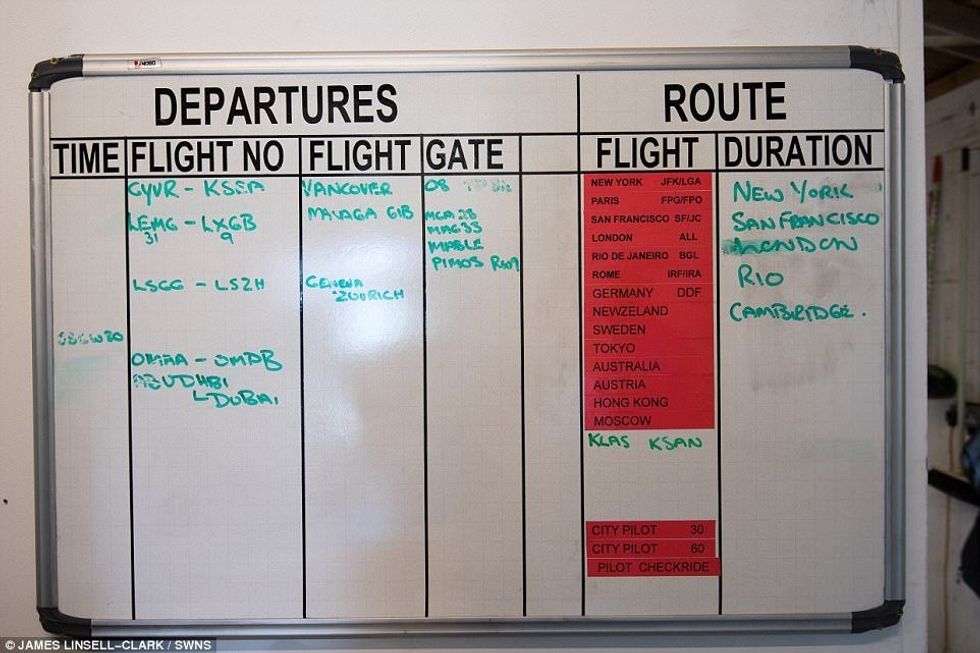 NOBO
DEPARTURES ROUTE
TIME FLIGHT NO FLIGHT GATE FLIGHT DURATION
CYVR - KSEA VANCOVER 08
LEMG - LXGB
31 9
MALAGA GIB
MGA 28
MAG 33
MABLE
PIMOS
LSGG - LSZH
GENEVA
ZUURICH
OMAA - OMDB
ABUDHBI
DUBAI
NEW YORK JFK/LGA
PARIS FPG/FPO
SAN FRANCISCO SF/JC
LONDON ALL
RIO DE JANEIRO BGL
ROME IRF/IRA
GERMANY DDF
NEWZELAND
SWEDEN
TOKYO
AUSTRALIA
AUSTRIA
HONG KONG
MOSCOW
KLAS KSAN
CITY PILOT 30
CITY PILOT 60
PILOT CHECKRIDE
NEW YORK
SAN FRANCISCO
LONDON
RIO
CAMBRIDGE.
© JAMES LINSELL-CLARK / SWNS